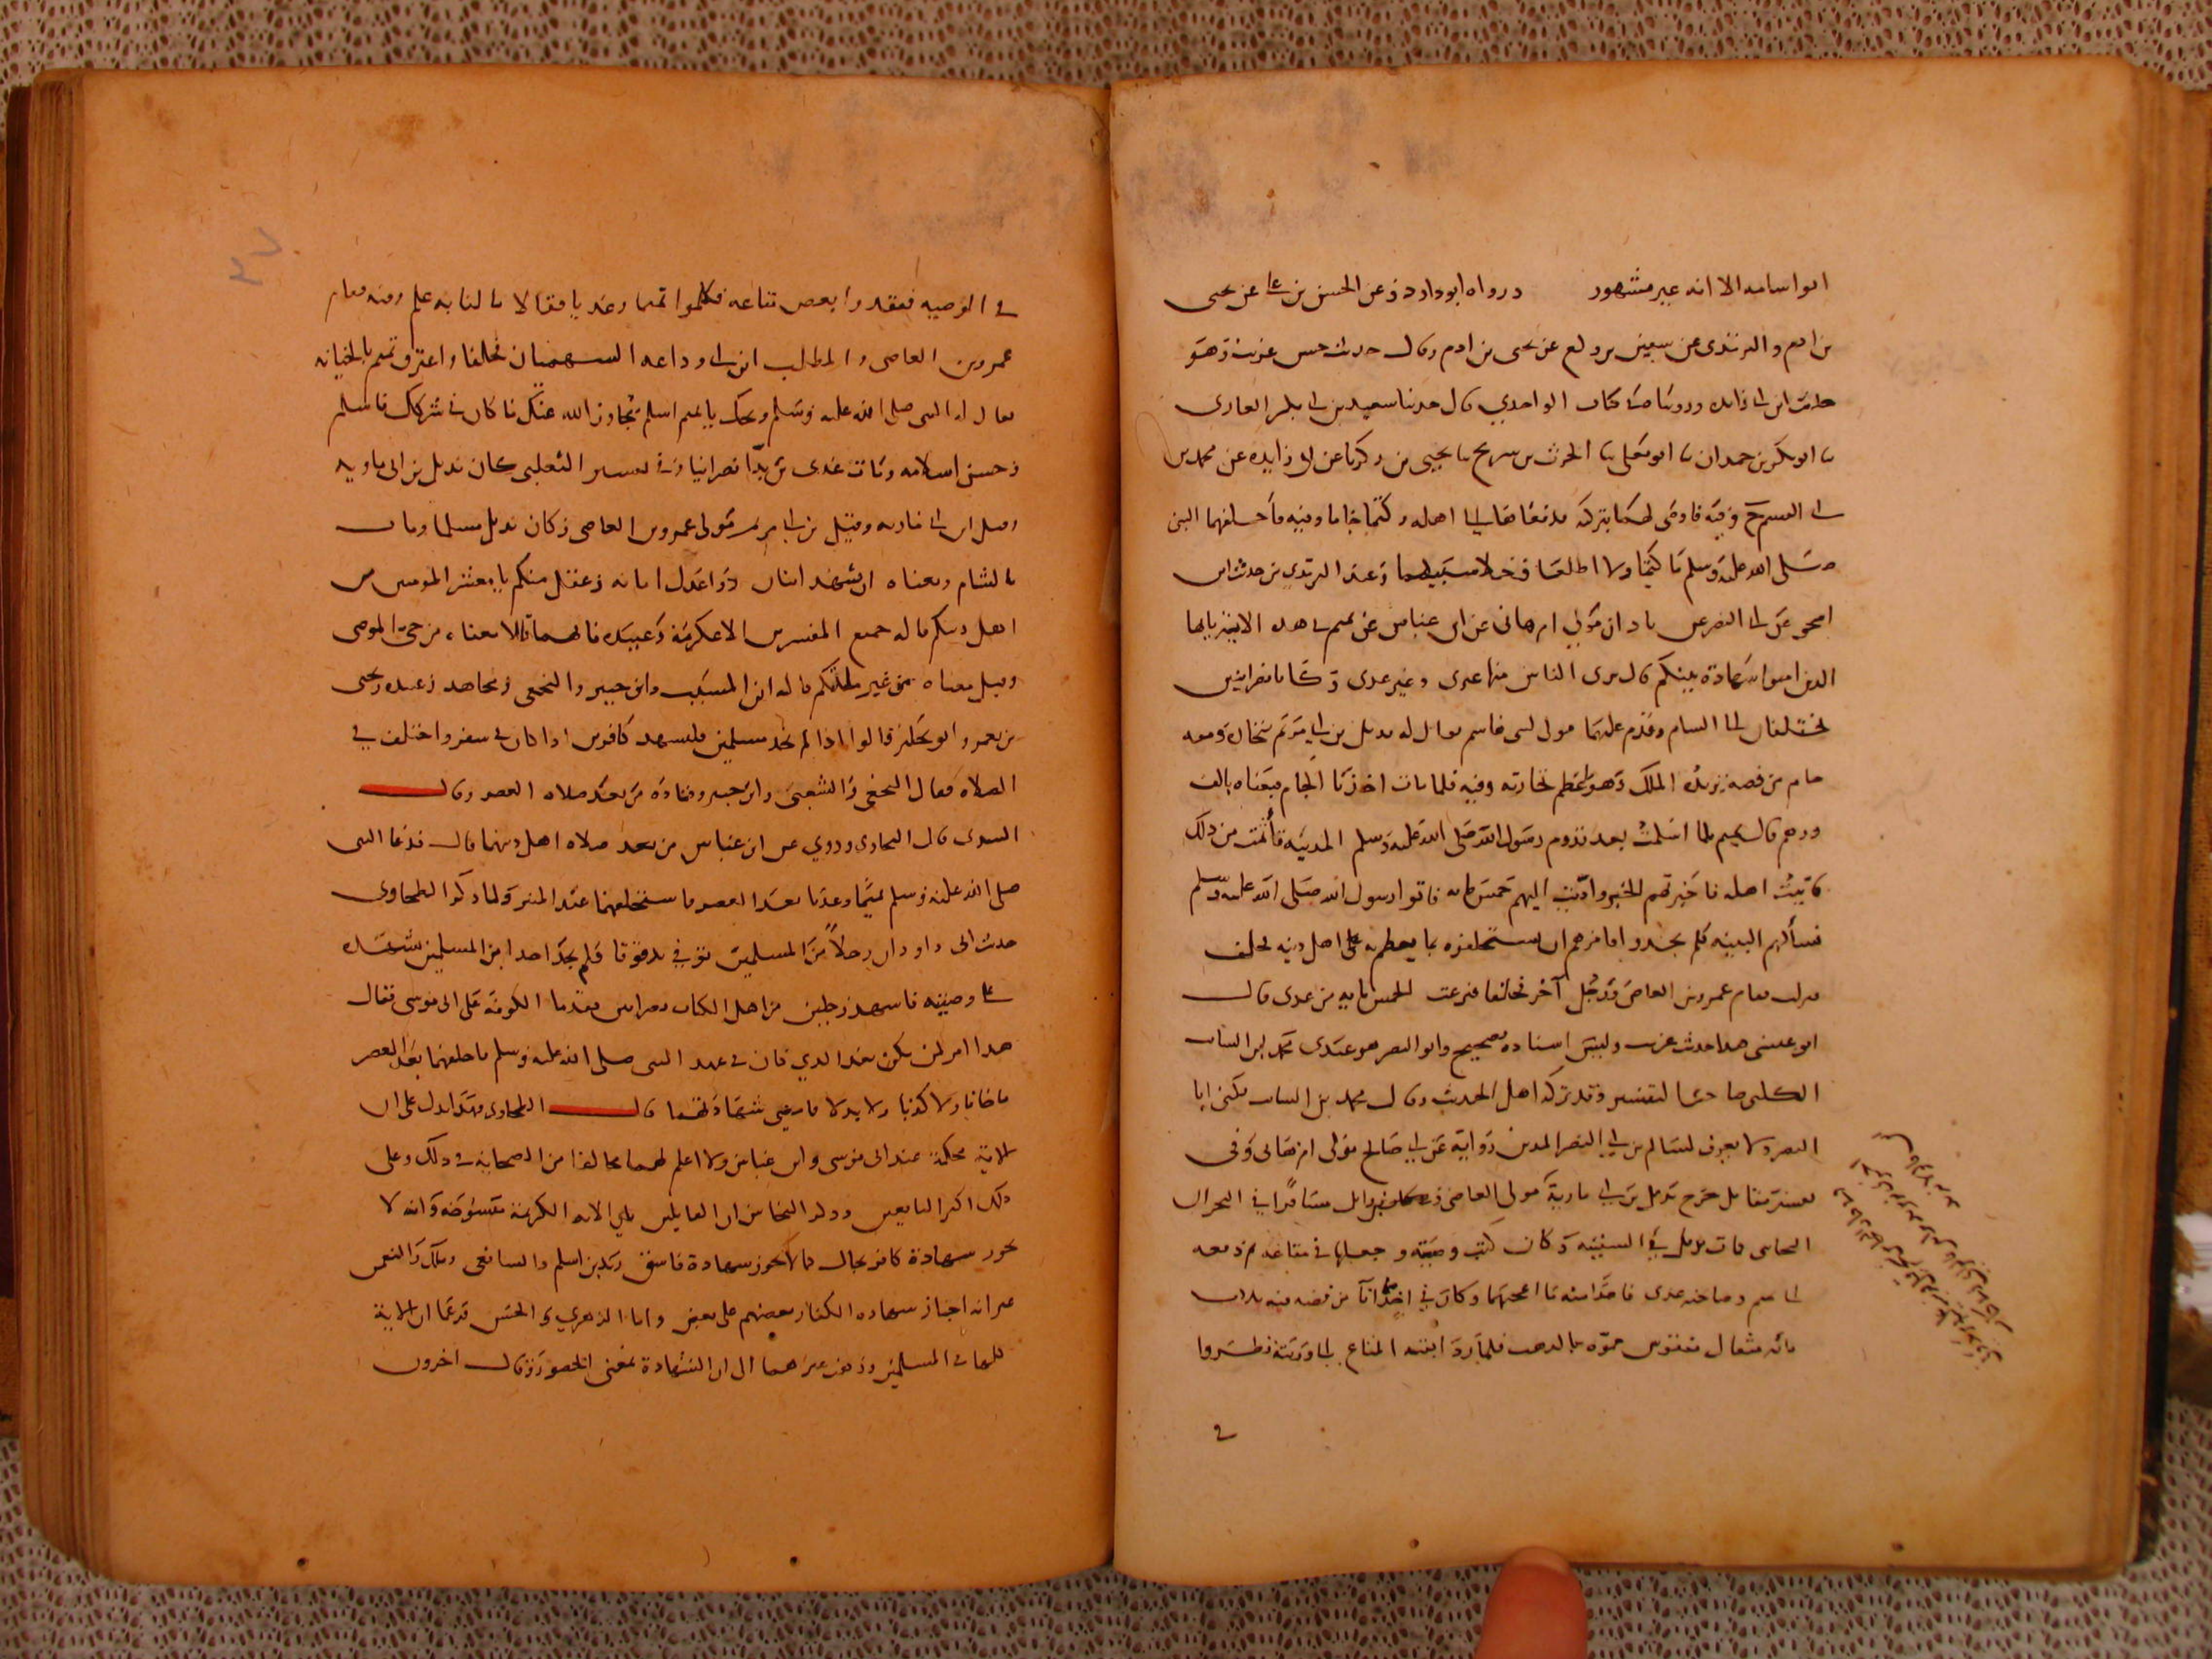 ابو اسامه الا انه غير مشهور ورواه ابو داود عن الحسن بن علي عن يحيى
بن ادم والترمذي عن سفين بن وكيع عن يحيى بن ادم وقال حديث حسن غريب وهو
حديث ابن ابي زائده وروينا في كتاب الواحدي قال حدثنا سعيد بن ابي بكر الغازي
نا ابو بكر بن حمدان نا ابو يعلى نا الحرث بن سريج نا يحيى بن زكريا عن ابي زايده عن محمد بن
ابي القسم وفيه فاوصى لهما بتركته فدفعاها الى اهله وكتما جاما وفيه فاحلفهما النبي
صلى الله عليه وسلم ما كتمتما ولا اطلعتما فخلا سبيلهما وعند الترمذي من حديث ابن
اسحق عن ابي النضر عن باذان مولى ام هاني عن ابن عباس عن تميم في هذه الاية يايها
الذين امنوا شهادة بينكم قال برئ الناس منها غيري وغير عدي وكانا نصرانيين
يختلفان الى الشام وقدم عليهما مولى لبني هاشم يقال له بديل بن ابي مريم بتجارة ومعه
جام من فضه يريد به الملك وهو عظم تجارته وفيه فلما مات اخذنا الجام فبعناه بالف
درهم قال تميم فلما اسلمت بعد قدوم رسول الله صلى الله عليه وسلم المدينه تأثمت من ذلك
فاتيت اهله فاخبرتهم الخبر واديت اليهم خمس مايه فاتوا رسول الله صلى الله عليه وسلم
فسألهم البينه فلم يجدوا فامرهم ان يستحلفوه بما يعظم به على اهل دينه فحلف
فنزلت فقام عمرو بن العاص ورجل آخر فحلفا فنزعت الخمس مايه من عدي قال
ابو عيسى هذا حديث غريب وليس اسناده بصحيح وابو النضر هو عندي محمد بن السائب
الكلبي صاحب التفسير وقد تركه اهل الحديث وقال محمد بن السائب يكنى ابا
النضر ولا يعرف لسالم بن ابي النضر المديني رواية عن ابي صالح مولى ام هاني وفي
تفسير مقاتل خرج بديل بن ابي مارية مولى العاصي بن وايل مسافرا في البحر الى
النجاشي فمات بديل في السفينه وكان كتب وصيته وجعلها في متاعه ثم دفعه
الى تميم وصاحبه عدي فاخذا منه ما اعجبهما وكان فيما اخذا انآ من فضه فيه ثلاث
مائه مثقال منقوش مموه بالذهب فلما ردا بقيه المتاع الى ورثته نظروا
في
في الوصيه ففقدوا بعض متاعه فكلموا تميما وعديا فقالا ما لنا به علم وفيه فقام
عمرو بن العاصي والمطلب ابن ابي وداعه السهميان فحلفا واعترف تميم بالخيانه
فقال له النبي صلى الله عليه وسلم ويحك يا تميم اسلم يتجاوز الله عنك ما كان في شركك فاسلم
وحسن اسلامه ومات عدي بن بدا نصرانيا وفي تفسير الثعلبي كان بديل بن ابي ماويه
وقيل ابن ابي ماريه وقيل بن ابي مريم مولى عمرو بن العاصي وكان بديل مسلما ومات
بالشام ومعناه ان يشهد اثنان ذوا عدل امانه وعقل منكم يا معشر المومنين من
اهل دينكم قاله جميع المفسرين الا عكرمة وعبيده فانهما قالا معناه من حي الموصي
وقيل معناه من غير ملتكم قاله ابن المسيب وابن جبير والنخعي ومجاهد وعبيده ويحيى
بن يعمر وابو مجلز قالوا اذا لم نجد مسلمين فليشهد كافرين اذا كان في سفر واختلف في
الصلاه فقال النخعي والشعبي وابن جبير وقتادة من بعد صلاه العصر وقال
السدي قال الطحاوي وروي عن ابن عباس من بعد صلاه اهل دينهما قال فدعا النبي
صلى الله عليه وسلم تميما وعديا بعد العصر فاستحلفهما عند المنبر ولما ذكر الطحاوي
حديث ابي داود ان رجلاً من المسلمين توفي بدقوقا فلم يجد احدا من المسلمين يشهده
على وصيته فاشهد رجلين من اهل الكتاب نصرانيين فقدما الكوفة على ابي موسى فقال
هذا امر لم يكن بعد الذي كان في عهد النبي صلى الله عليه وسلم فاحلفهما بعد العصر
ما خانا ولا كذبا ولا بدلا فامضى شهادتهما قال الطحاوي فهذا يدل على ان
الاية محكمة عند ابي موسى وابن عباس ولا اعلم لهما مخالفا من الصحابة في ذلك وعلى
ذلك اكثر التابعين وذكر النحاس ان القايلين بان الايه الكريمة منسوخة وانه لا
تجوز شهادة كافر بحال كما لا تجوز شهادة فاسق زيد بن اسلم والشافعي وملك والنعمن
غير انه اجاز شهاده الكفار بعضهم على بعض واما الزهري والحسن فزعما ان الاية
كلها في المسلمين وذهب غيرهما الى ان الشهادة بمعنى الحضور وقال اخرون